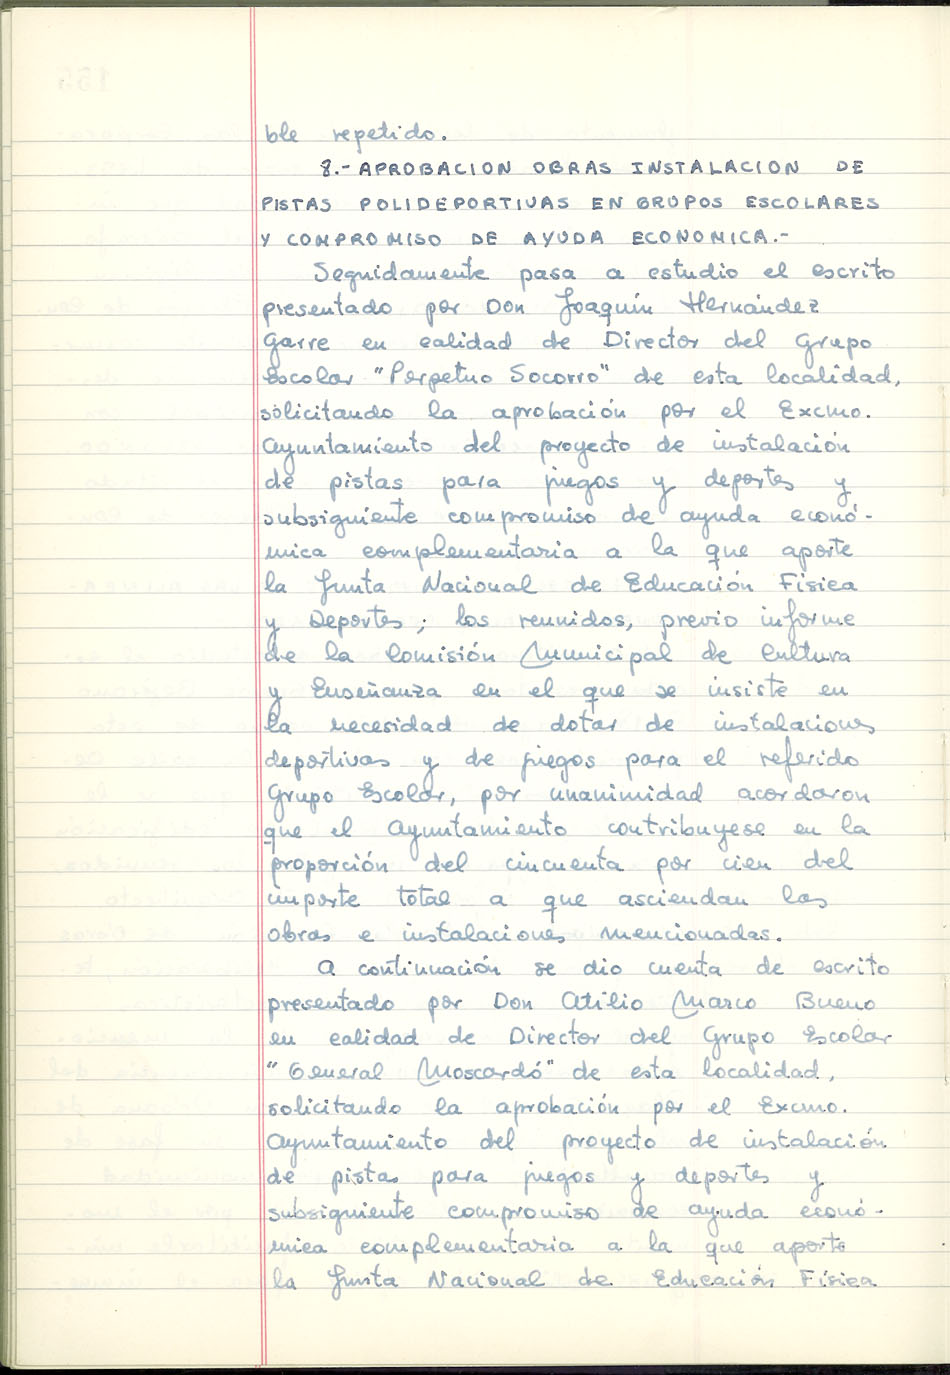 ble repetido.
8.- APROBACION OBRAS INSTALACION DE
PISTAS POLIDEPORTIVAS EN GRUPOS ESCOLARES
Y COMPROMISO DE AYUDA ECONOMICA.-
Seguidamente pasa a estudio el escrito
presentado por Don Joaquín Hernández
Garre en calidad de Director del Grupo
Escolar "Perpetuo Socorro" de esta localidad,
solicitando la aprobación por el Excmo.
Ayuntamiento del proyecto de instalación
de pistas para juegos y deportes y
subsiguiente compromiso de ayuda econó-
mica complementaria a la que aporte
la Junta Nacional de Educación Física
y Deportes; los reunidos, previo informe
de la Comisión Municipal de Cultura
y Enseñanza en el que se insiste en
la necesidad de dotar de instalaciones
deportivas y de juegos para el referido
Grupo Escolar, por unanimidad acordaron
que el Ayuntamiento contribuyese en la
proporción del cincuenta por cien del
importe total a que asciendan las
obras e instalaciones mencionadas.
A continuación se dio cuenta de escrito
presentado por Don Atilio Marco Bueno
en calidad de Director del Grupo Escolar
"General Moscardó" de esta localidad,
solicitando la aprobación por el Excmo.
Ayuntamiento del proyecto de instalación
de pistas para juegos y deportes y
subsiguiente compromiso de ayuda econó-
mica complementaria a la que aporte
la Junta Nacional de Educación Física